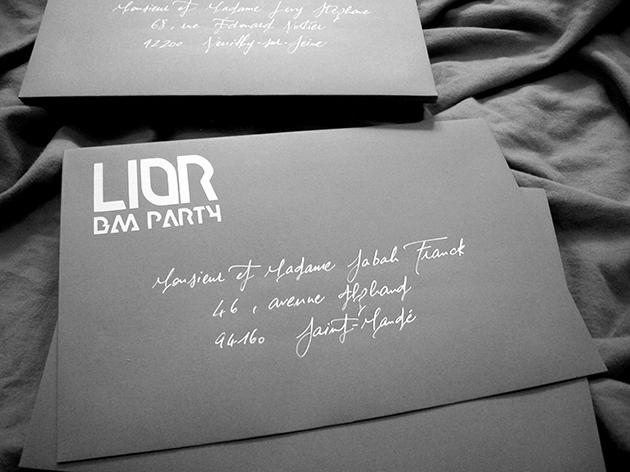 Monsieur et Madame Levy Stéphane
68, rue Edouard Nortier
92200 Neuilly-sur-Seine
LIOR
BM PARTY
Monsieur et Madame Sabah Franck
46, avenue Alphand
94160 Saint-Mandé